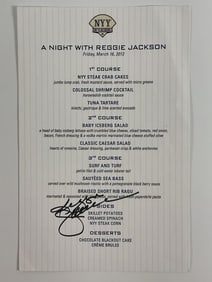 NYY
STEAK
A NIGHT WITH REGGIE JACKSON
Friday, March 16, 2012
1ST COURSE
NYY STEAK CRAB CAKES
jumbo lump crab, fresh mustard sauce, served with micro greens
COLOSSAL SHRIMP COCKTAIL
horseradish cocktail sauce
TUNA TARTARE
2ND COURSE
BABY ICEBERG SALAD
a head of baby iceberg lettuce with crumbled blue cheese, diced tomato, red onion,
bacon, French dressing & a vodka marinated blue cheese stuffed olive
CLASSIC CAESAR SALAD
hearts of romaine, Caesar dressing, parmesan crisp & white anchovies
3RD COURSE
SURF AND TURF
petite filet & cold water lobster tail
SAUTÉED SEA BASS
served over wild mushroom risotto with a pomegranate black berry sauce
BRAISED SHORT RIB RAGU
SIDES
SKILLET POTATOES
CREAMED SPINACH
NYY STEAK CORN
DESSERTS
CHOCOLATE BLACKOUT CAKE
CRÈME BRULEE